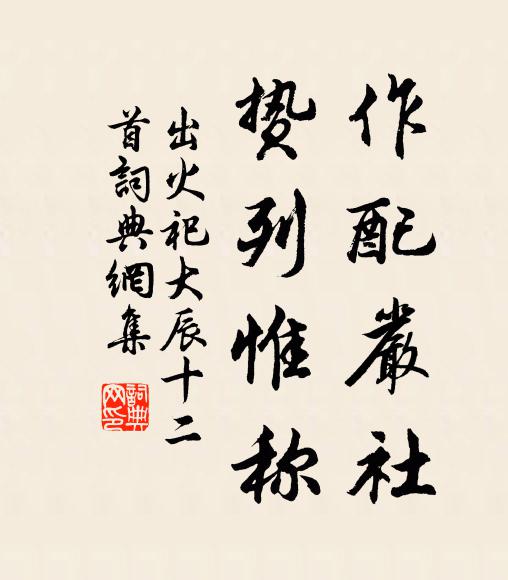 作配嚴社
贽列惟称
出火祀大辰十二
首詞典網集
詞典
网印